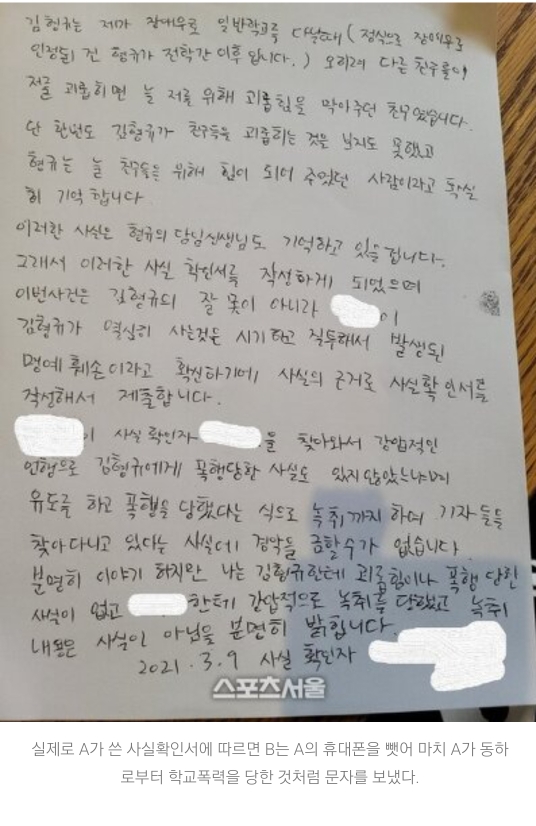 김형규는 제가 장애우로 일반학교를 다닐때 (정식으로 장애우로
인정된 건 형규가 전학간 이후 입니다.) 오히려 다른 친구들이
저를 괴롭히면 늘 저를 위해 괴롭힘을 막아주던 친구였습니다.
단 한번도 김형규가 친구들을 괴롭히는 것을 보지도 못했고
형규는 늘 친구들을 위해 힘이 되어 주었던 사람이라고 똑똑
히 기억합니다
이러한 사실은 형규의 담임선생님도 기억하고 있을 겁니다.
그래서 이러한 사실 확인서를 작성하게 되었으며
이번사건은 김형규의 잘못이 아니라 이
김형규가 열심히 사는것은 시기하고 질투해서 발생된
명예훼손이라고 확신하기에 사실의 근거로 사실확인서를
작성해서 제출합니다.
이 사실확인자 을 찾아와서 강압적인
언행으로 김형규에게 폭행당한 사실도 있지않았느냐며
유도를 하고 폭행을 당했다는 식으로 녹취까지 하여 기자들을
찾아다니고 있다는 사실에 경악을 금할수가 없습니다
분명히 이야기 하지만 나는 김형규한테 괴롭힘이나 폭행 당한
사실이 없고 한테 강압적으로 녹취를 당했고 녹취
내용은 사실이 아님을 분명히 밝힙니다.
2021.3.9 사실 확인자
스포츠서울
실제로 A가 쓴 사실확인서에 따르면 B는 A의 휴대폰을 뺏어 마치 A가 동하
로부터 학교폭력을 당한 것처럼 문자를 보냈다.